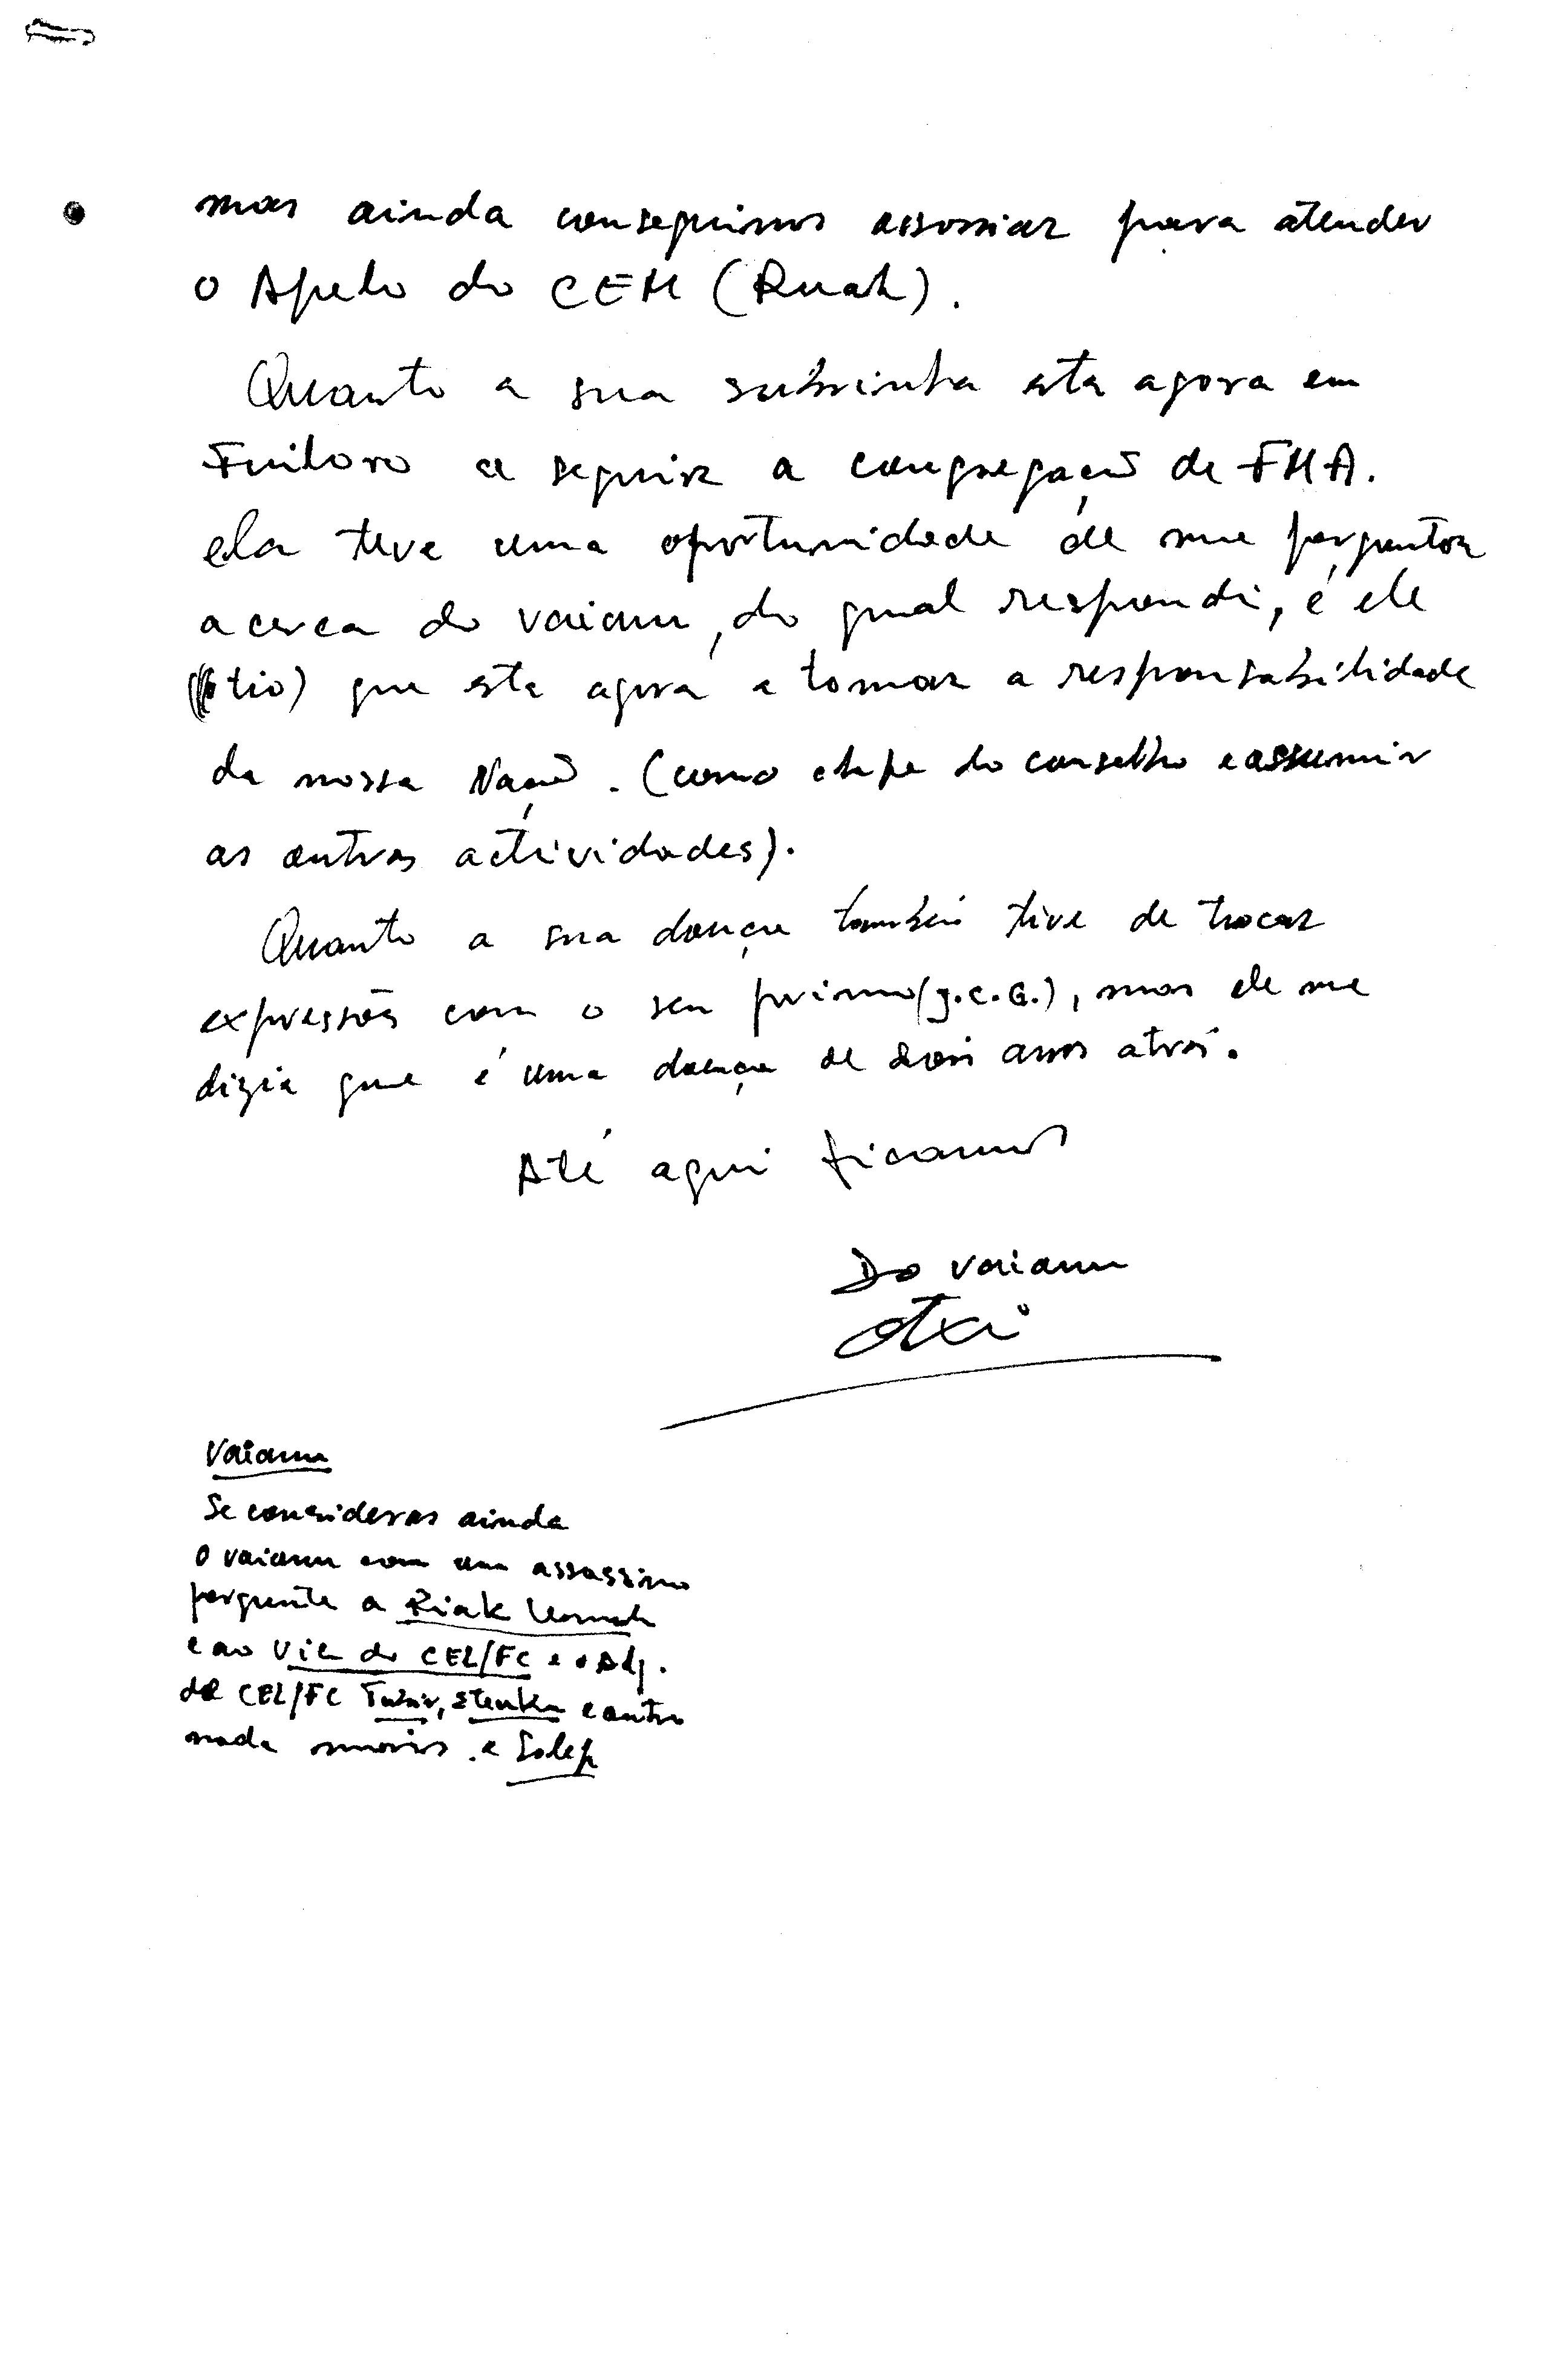 mas ainda conseguimos assomiar para atender
o Apelo do CEM (Ruak).
Quanto a sua subrinha esta agora em
Fuiloro a seguir a congregação de FMA.
ela teve uma oportunidade de me perguntar
acerca do vaianu, do qual respondi, é ele
(tio) que esta agora a tomar a responsabilidade
da nossa Nação. (como chefe do conselho e assumir
as outras actividades).
Quanto a sua doença também tive de trocar
expressões com o seu primo (J.C.G.), mas ele me
dizia que é uma doença de dois anos atrás.
Até aqui ficamos
Do vaianu
Vaianu
Se consideras ainda
o vaianu com um assassino
pergunte a Riak Leman
e ao Vic do CEL/FC e o Adj.
do CEL/FC Tubir, e outro
nada mais. e